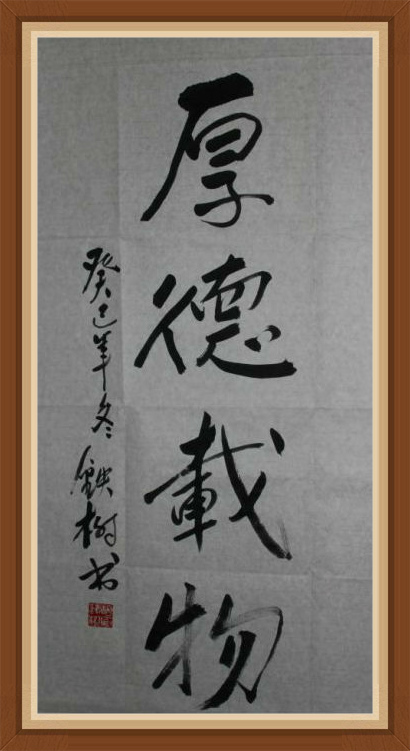 厚德載物
癸巳年冬 鉄樹书